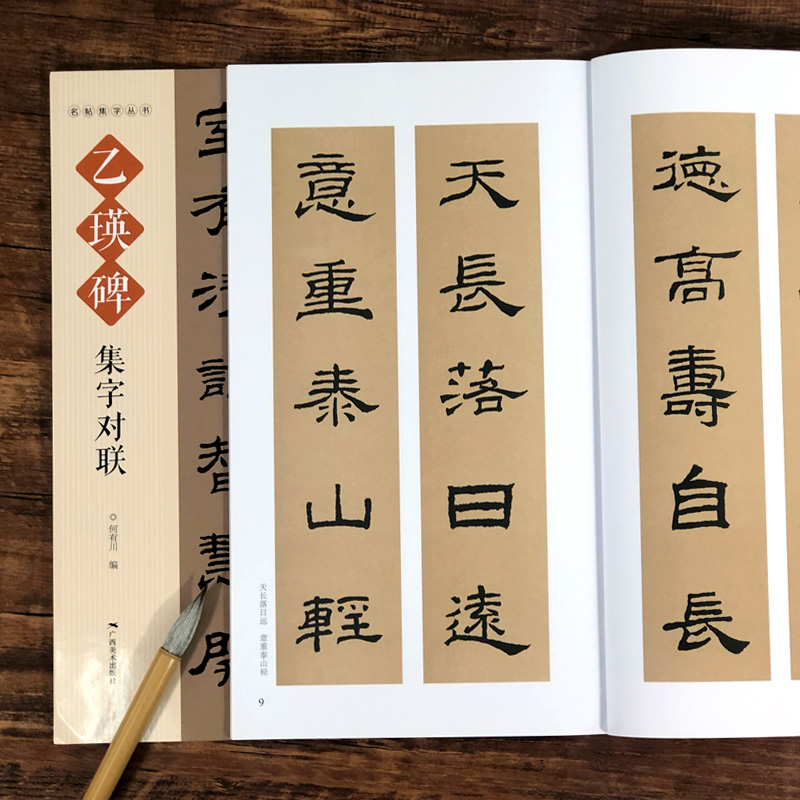 名帖集字丛书
乙瑛碑
集字对联
◎何有川 编
广西美术出版社
室有清智慧開
天長落日遠
意重泰山輕
天长落日远 意重泰山轻
9
德高壽自長